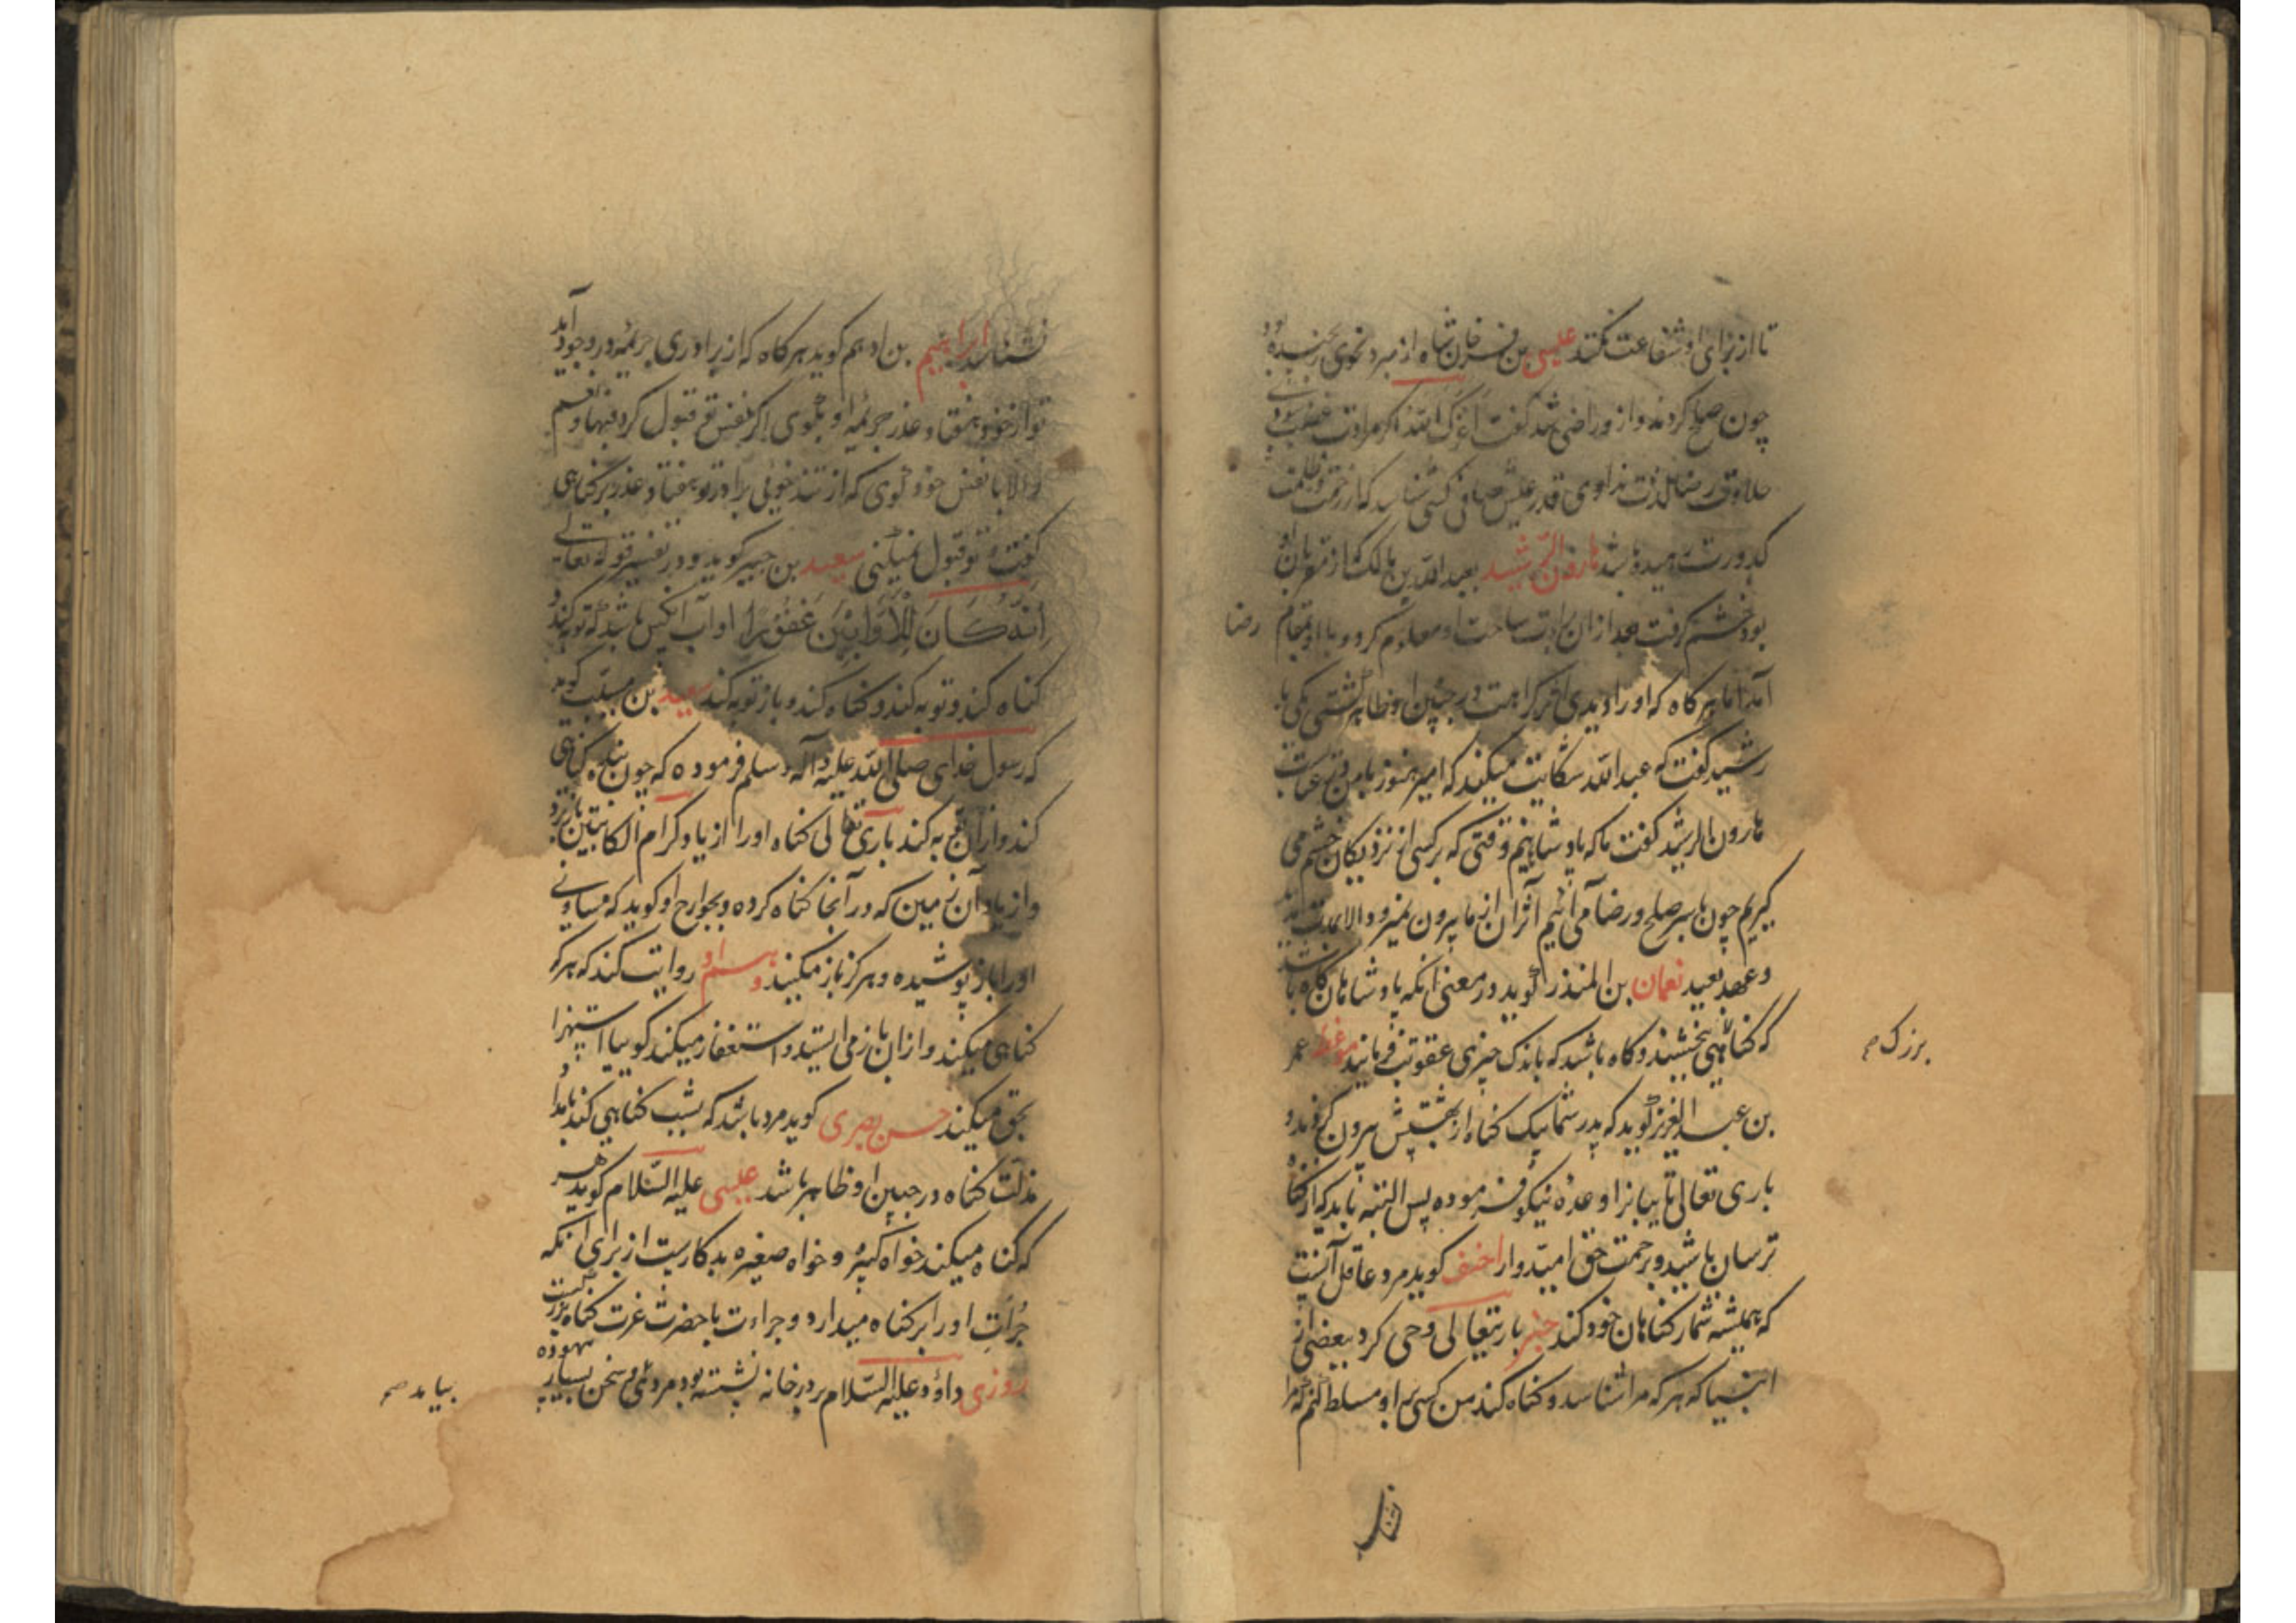 تا از برای او شفاعت نکند عیسی بن فرخان شاه از مبرد نحوی رنجیده بود
چون صلح کردند و از و راضی شد گفت اعزک الله اگر مرارت غضب نبودی
حلاوت رضا لذت ندادی قدر عیش صافی کسی شناسد که از زحمت و ظلمت
کدورت رسیده باشد هارون الرشید بعبد الله بن مالک که از مقربان او
بود خشم گرفت بعد از آن براءت ساحت او معلوم کرد و با او بمقام رضا
آمد اما هر گاه که او را دیدی اثر کراهت در جبین او ظاهر گشتی یکی با
رشید گفت که عبد الله شکایت میکند که امیر هنوز با من در عتاب
هارون الرشید گفت ما که پادشاهیم وقتی که بر کسی از نزدیکان خشم می
گیریم چون باسر صلح و رضا می آئیم اثر آن از ما بیرون نمیرود الا بمدت
و عهد بعید نعمان بن المنذر گوید در معنی آنکه پادشاهان گاه باشد
که گناهی بخشند و گاه باشد که باندک چیزی عقوبت فرمایند موعظه عمر
بزرگ صح
بن عبد العزیز گوید که پدر شما بیک گناه از بهشتش بیرون کردند و
باری تعالی تایبانرا وعده نیکو فرموده پس البته باید که از گناه
ترسان باشید و برحمت حق امیدوار احنف گوید مرد عاقل آنست
که همیشه شمار گناهان خود کند خبر باریتعالی وحی کرد ببعضی از
انبیا که هر که مرا شناسد و گناه کند من کسی بر او مسلط کنم که مرا
نشناسد ابراهیم بن ادهم گوید هر گاه که از برادری جریمه در وجود آید
تو از خود هفتاد عذر جریمه او بگوی اگر نفس تو قبول کرد فبها و نعم
و الا با نفس خود گوی که از تند خوئی برادر تو هفتاد عذر بر گناهی
گفت و تو قبول نمیکنی سعید بن جبیر گوید در تفسیر قوله تعالی
اِنَّهُ كَانَ لِلْاَوَّابِيْنَ غَفُوْرًا اواب آنکس باشد که توبه کند و
گناه کند و توبه کند و گناه کند و باز توبه کند سعید بن مسیب گوید
که رسول خدای صلی الله علیه و آله و سلم فرموده که چون بنده گناهی
کند و از آن توبه کند باری تعالی گناه او را از یاد کرام الکاتبین باز برد
و از یاد آن زمین که در آنجا گناه کرده و بجوارح او گوید که مساوی
او را باز پوشیده و هرگز باز مگیند و هم او روایت کند که هر که
گناهی میکند و از آن باز می ایستد و استغفار میکند گوییا استهزا
بحق میکند حسن بصری گوید مرد باشد که بشب گناهی کند بامداد
مذلت گناه در جبین او ظاهر باشد عیسی علیه السلام گوید هر
که گناه میکند خواه کبیره و خواه صغیره بد کاریست از برای آنکه
جرات او را بر گناه میدارد و جراءت با حضرت عزت گناه بزرگیست
روزی داؤد علیه السلام بر در خانه نشسته بود مردی و سخن بسیار بیهوده
بیامد صح